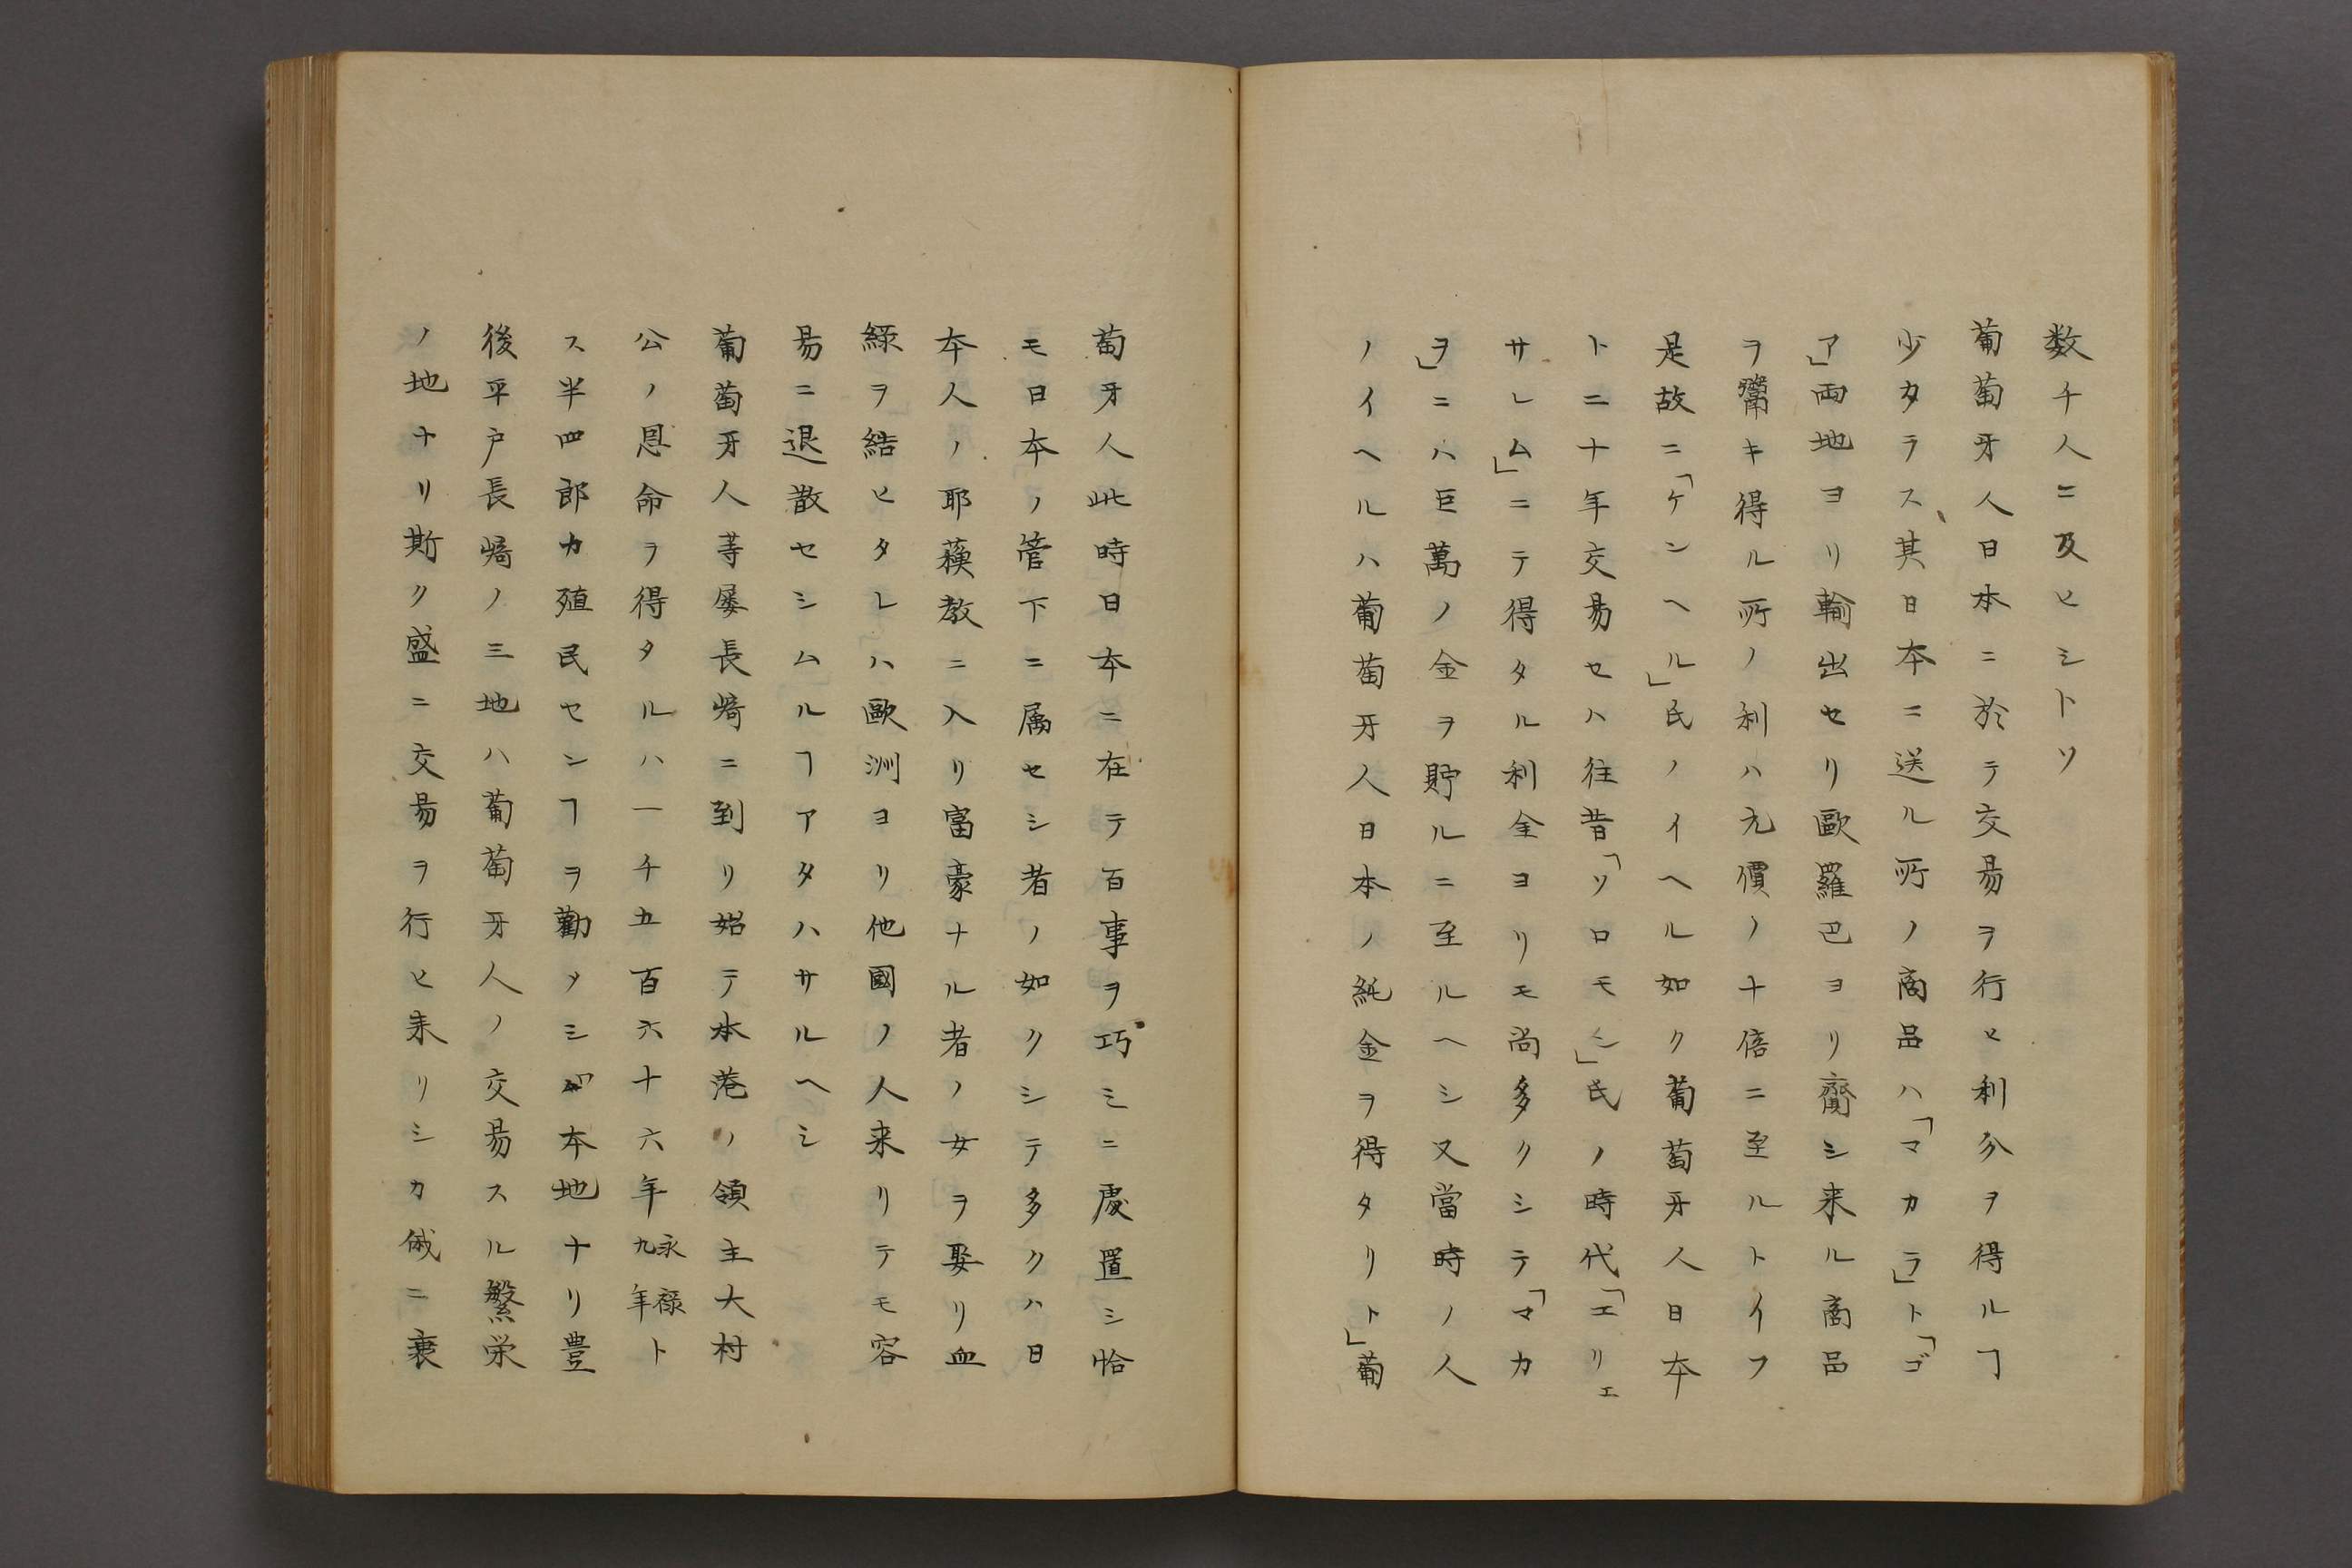 数千人ニ及ヒシトソ
葡萄牙人日本ニ於テ交易ヲ行ヒ利分ヲ得ルヿ
少タラス其日本ニ送ル所ノ商品ハ「マカラ」ト「ゴ
ア」両地ヨリ輸出セリ歐羅巴ヨリ齎シ来ル商品
ヲ鬻キ得ル所ノ利ハ元價ノ十倍ニ至ルトイフ
是故ニ「ケンヘル」氏ノイヘル如ク葡萄牙人日本
ト二十年交易セハ往昔「ソロモシ」氏ノ時代「エリエ
サレム」ニテ得タル利全ヨリモ尚多クシテ「マカ
ヲ」ニハ巨萬ノ金ヲ貯ルニ至ルヘシ又當時ノ人
ノイヘルハ葡萄牙人日本ノ純金ヲ得タリト」葡
萄牙人此時日本ニ在テ百事ヲ巧ミニ處置シ恰
モ日本ノ管下ニ属セシ者ノ如クシテ多クハ日
本人ノ耶蘓教ニ入リ富豪ナル者ノ女ヲ娶リ血
縁ヲ結ヒタレハ歐洲ヨリ他國ノ人来リテモ容
易ニ退散セシムルヿアタハサルヘシ
葡萄牙人等屡長﨑ニ到リ始テ本港ノ領主大村
公ノ恩命ヲ得タルハ一千五百六十六年永禄九年ト
ス半四郎カ殖民センヿヲ勸メシ本地ナリ豊
後平戸長﨑ノ三地ハ葡萄牙人ノ交易スル繁栄
ノ地ナリ斯ク盛ニ交易ヲ行ヒ来リシカ俄ニ衰